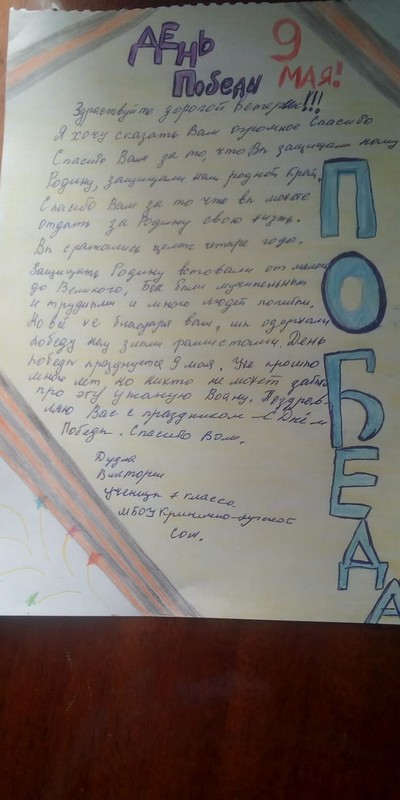 ДЕНЬ
Победы
9
МАЯ!
Здравствуйте дорогой Ветеран!!!
Я хочу сказать Вам огромное Спасибо
Спасибо Вам за то, что Вы защищали нашу
Родину, защищали наш родной край.
Спасибо Вам за то что вы можете
отдать за Родину свою жизнь.
Вы сражались целые четыре года.
Защищать Родину вставали от малого
до Великого, бои были мучительными
и трудными и много людей погибли.
Но всё же благодаря вам, мы одержали
победу над этими фашистами. День
победы празднуется 9 мая. Уже прошло
много лет, но никто не может забыть
про эту ужасную Войну. Поздрав-
ляю Вас с праздником – С Днём
Победы. Спасибо Вам.
Виктория
ученица 7 класса
МБОУ
СОШ.
ПОБЕДА